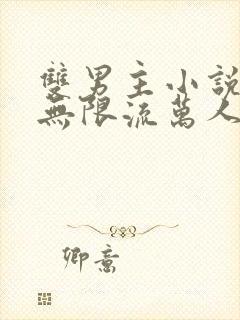 雙男主小說
無限流萬人
卿意